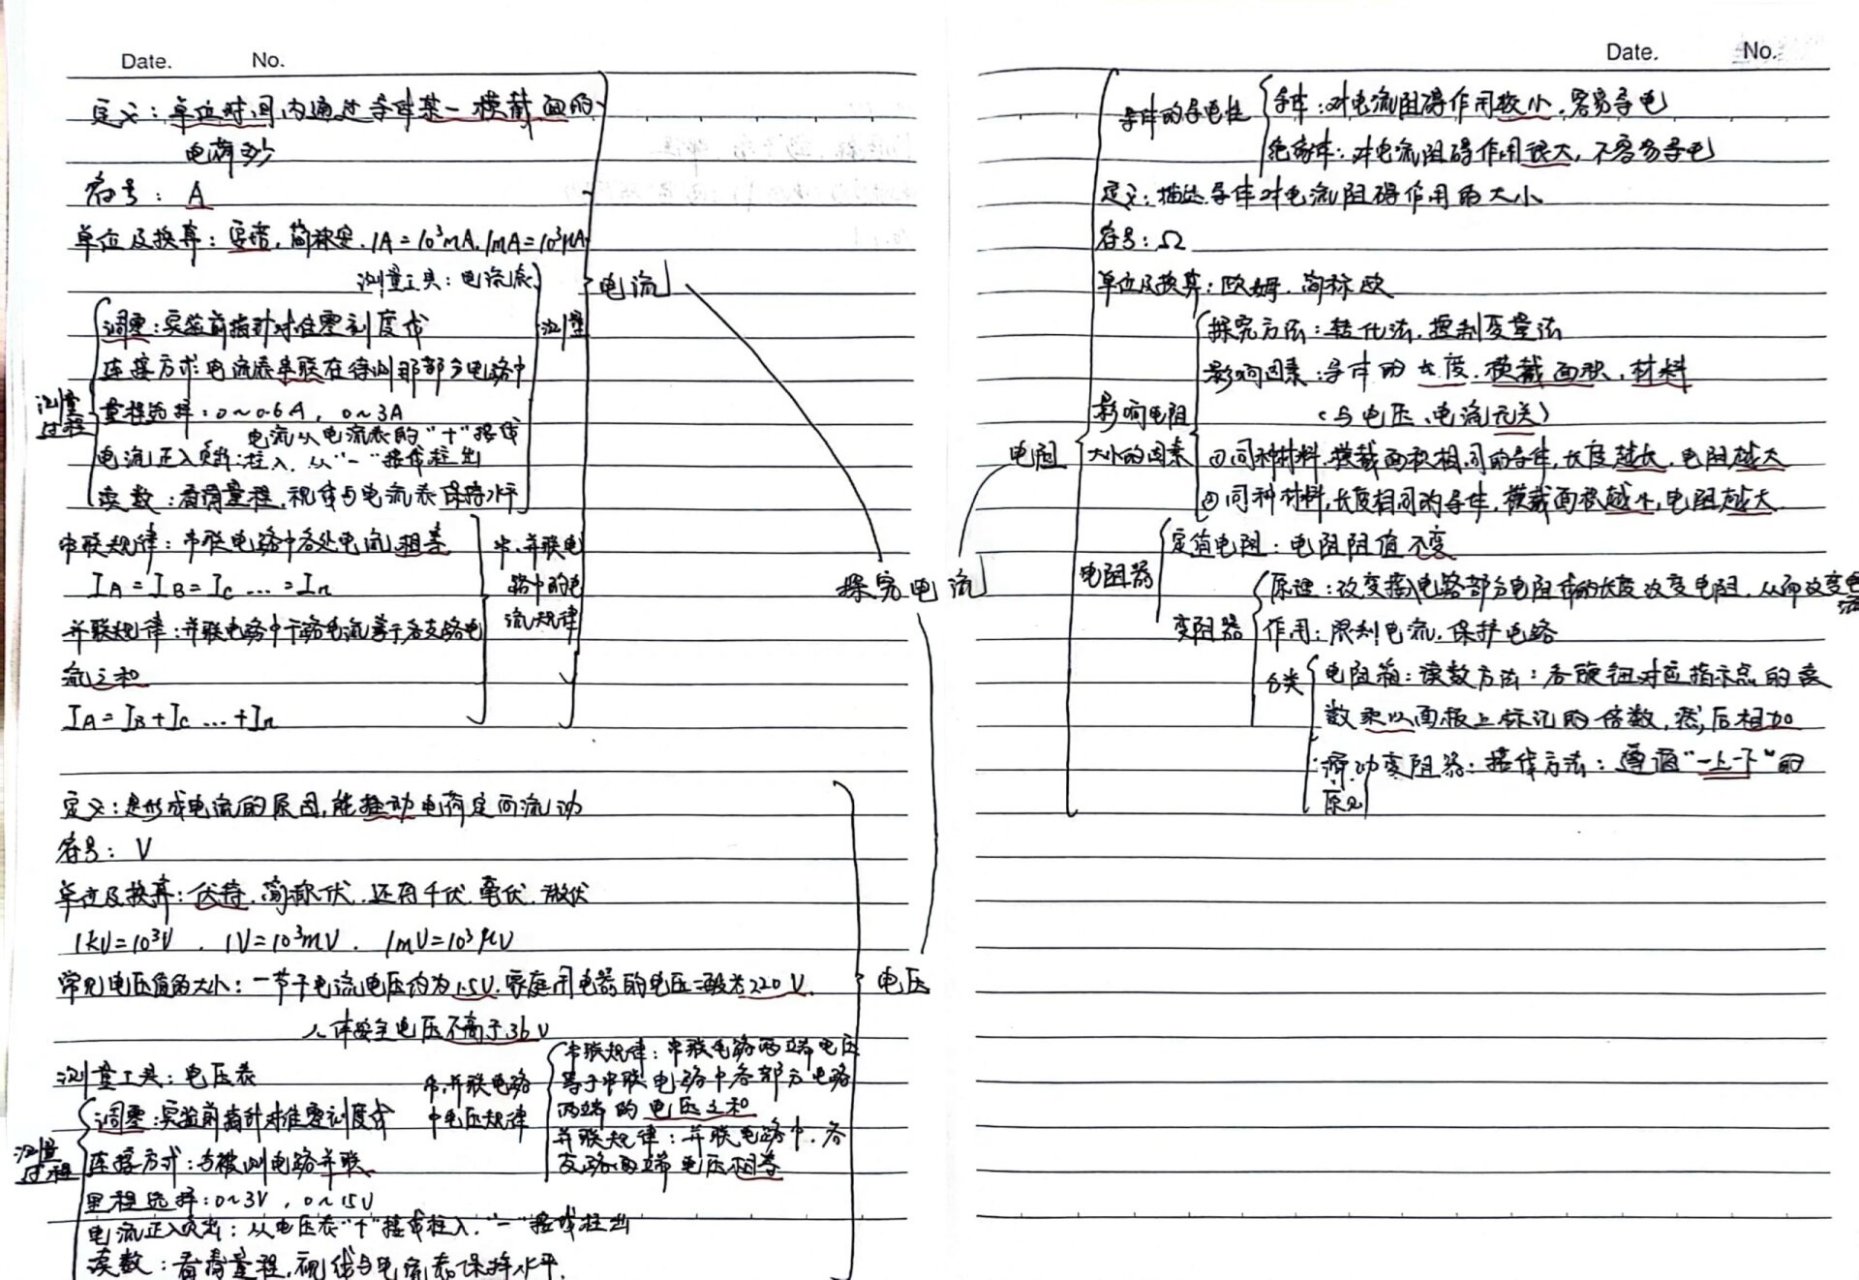 Date. No.
定义：单位时间内通过导体某一横截面的
电荷多少
符号：A
单位及换算：安培，简称安．1A=10³mA．1mA=10³μA
测量工具：电流表
测量
调零：实验前指针对准零刻度线
连接方式：电流表串联在待测那部分电路中
量程选择：0~0.6A，0~3A
电流从电流表的"+"接线
电流正入负出：柱入．从"-"接线柱出
读数：看清量程，视线与电流表保持水平
测量
过程
电流
串联规律：串联电路中各处电流相等
IA=IB=IC…=In
并联规律：并联电路中干路电流等于各支路电
流之和
IA=IB+IC…+In
串、并联电
路中的电
流规律
探究电流
定义：是形成电流的原因，能推动电荷定向流动
符号：V
单位及换算：伏特．简称伏．还有千伏．毫伏．微伏
1kV=10³V．1V=10³mV．1mV=10³μV
常见电压值的大小：一节干电流电压约为1.5V．家庭用电器的电压一般为220V．
人体安全电压不高于36V
电压
测量工具：电压表
调零：实验前指针对准零刻度线
连接方式：与被测电路并联
量程选择：0~3V，0~15V
电流正入负出：从电压表"+"接线柱入．"-"接线柱出
读数：看清量程，视线与电流表保持水平．
测量
过程
串、并联电路
中电压规律
串联规律：串联电路两端电压
等于串联电路中各部分电路
两端的电压之和
并联规律：并联电路中．各
支路两端电压相等
Date. No.
导体的导电性
导体：对电流阻碍作用较小．容易导电
绝缘体：对电流阻碍作用很大，不容易导电
定义：描述导体对电流阻碍作用的大小
符号：Ω
单位及换算：欧姆．简称欧
电阻
影响电阻
大小的因素
探究方法：转化法．控制变量法
影响因素：导体的长度．横截面积．材料
（与电压、电流无关）
①同种材料．横截面积相同的导体，长度越长．电阻越大
②同种材料，长度相同的导体，横截面积越小，电阻越大
电阻器
定值电阻：电阻阻值不变
变阻器
原理：改变接入电路部分电阻体的长度改变电阻．从而改变电
流
作用：限制电流．保护电路
分类
电阻箱：读数方法：各旋钮对应指示点的读
数乘以面板上标记的倍数，然后相加
滑动变阻器：接线方法：遵循"一上一下"的
原则